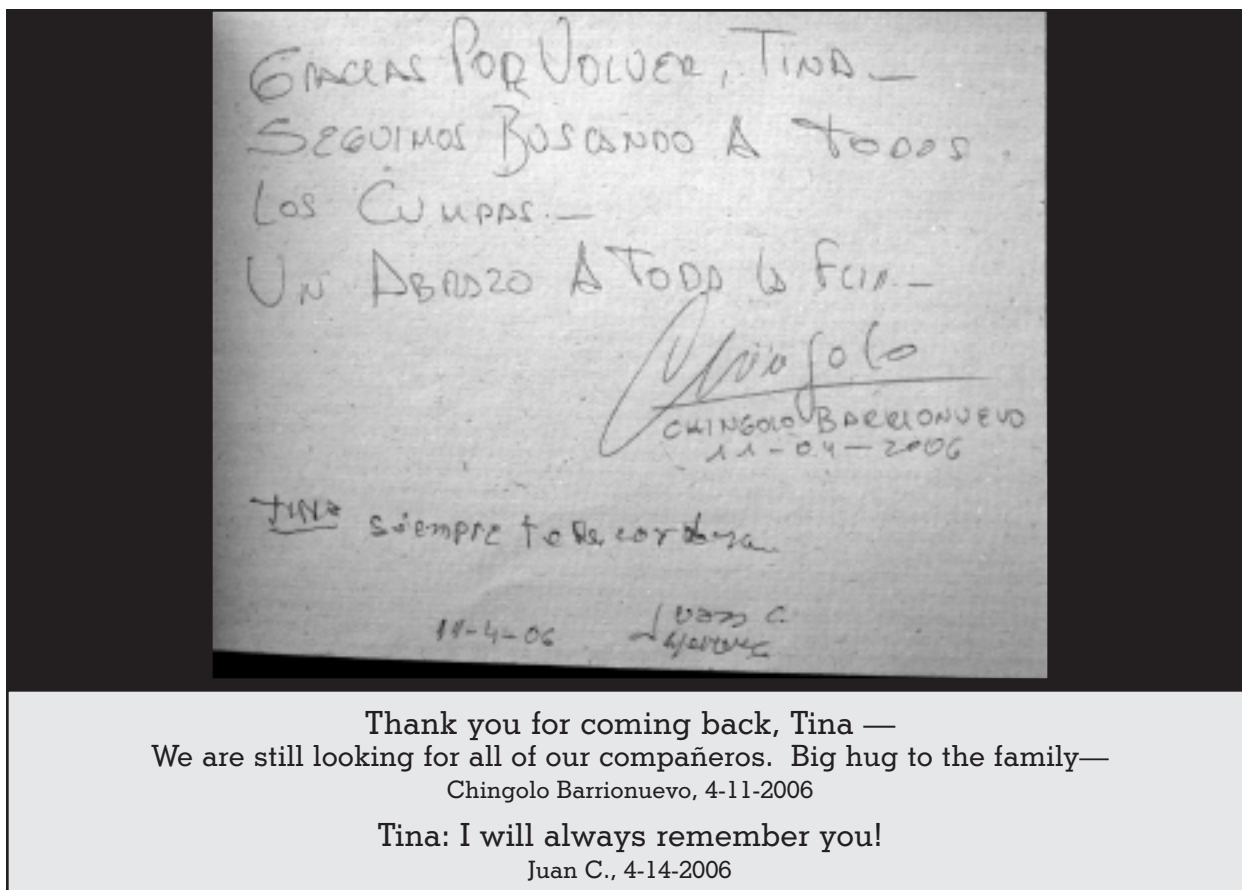 GRACIAS POR VOLVER, TINA —
SEGUIMOS BUSCANDO A TODOS
LOS CUMPAS. —
UN ABRAZO A TODA LA FLIA. —
Chingolo
CHINGOLO BARRIONUEVO
11-04-2006
TINA siempre te
11-4-06 JUAN C.
Thank you for coming back, Tina —
We are still looking for all of our compañeros. Big hug to the family—
Chingolo Barrionuevo, 4-11-2006
Tina: I will always remember you!
Juan C., 4-14-2006